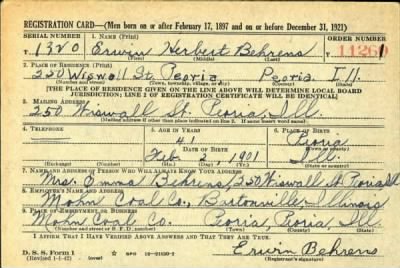 REGISTRATION CARD—(Men born on or after February 17, 1897 and on or before December 31, 1921)
SERIAL NUMBER 1. NAME (Print) ORDER NUMBER
T 1320 Erwin Herbert Behrens 11261
(First) (Middle) (Last)
2. PLACE OF RESIDENCE (Print)
250 Wiswall St. Peoria Peoria Ill.
(Number and street) (Town, township, village, or city) (County) (State)
[THE PLACE OF RESIDENCE GIVEN ON THE LINE ABOVE WILL DETERMINE LOCAL BOARD
JURISDICTION; LINE 2 OF REGISTRATION CERTIFICATE WILL BE IDENTICAL]
3. MAILING ADDRESS
250 Wiswall St. Peoria, Ill.
[Mailing address if other than place indicated on line 2. If same insert word same]
4. TELEPHONE 5. AGE IN YEARS 6. PLACE OF BIRTH
41 Peoria
DATE OF BIRTH
Feb. 2, 1901 Ill.
(Exchange) (Number) (Mo.) (Day) (Yr.) (State or country)
7. NAME AND ADDRESS OF PERSON WHO WILL ALWAYS KNOW YOUR ADDRESS
Mrs. Emma Behrens, 250 Wiswall St. Peoria Ill
8. EMPLOYER'S NAME AND ADDRESS
Mohn Coal Co., Bartonville, Illinois
9. PLACE OF EMPLOYMENT OR BUSINESS
Mohn Coal Co. Peoria, Peoria, Ill.
(Number and street or R. F. D. number) (Town) (County) (State)
I AFFIRM THAT I HAVE VERIFIED ABOVE ANSWERS AND THAT THEY ARE TRUE.
D. S. S. Form 1
(Revised 1-1-42) (over) GPO 16-21630-2
Erwin Behrens
(Registrant's signature)